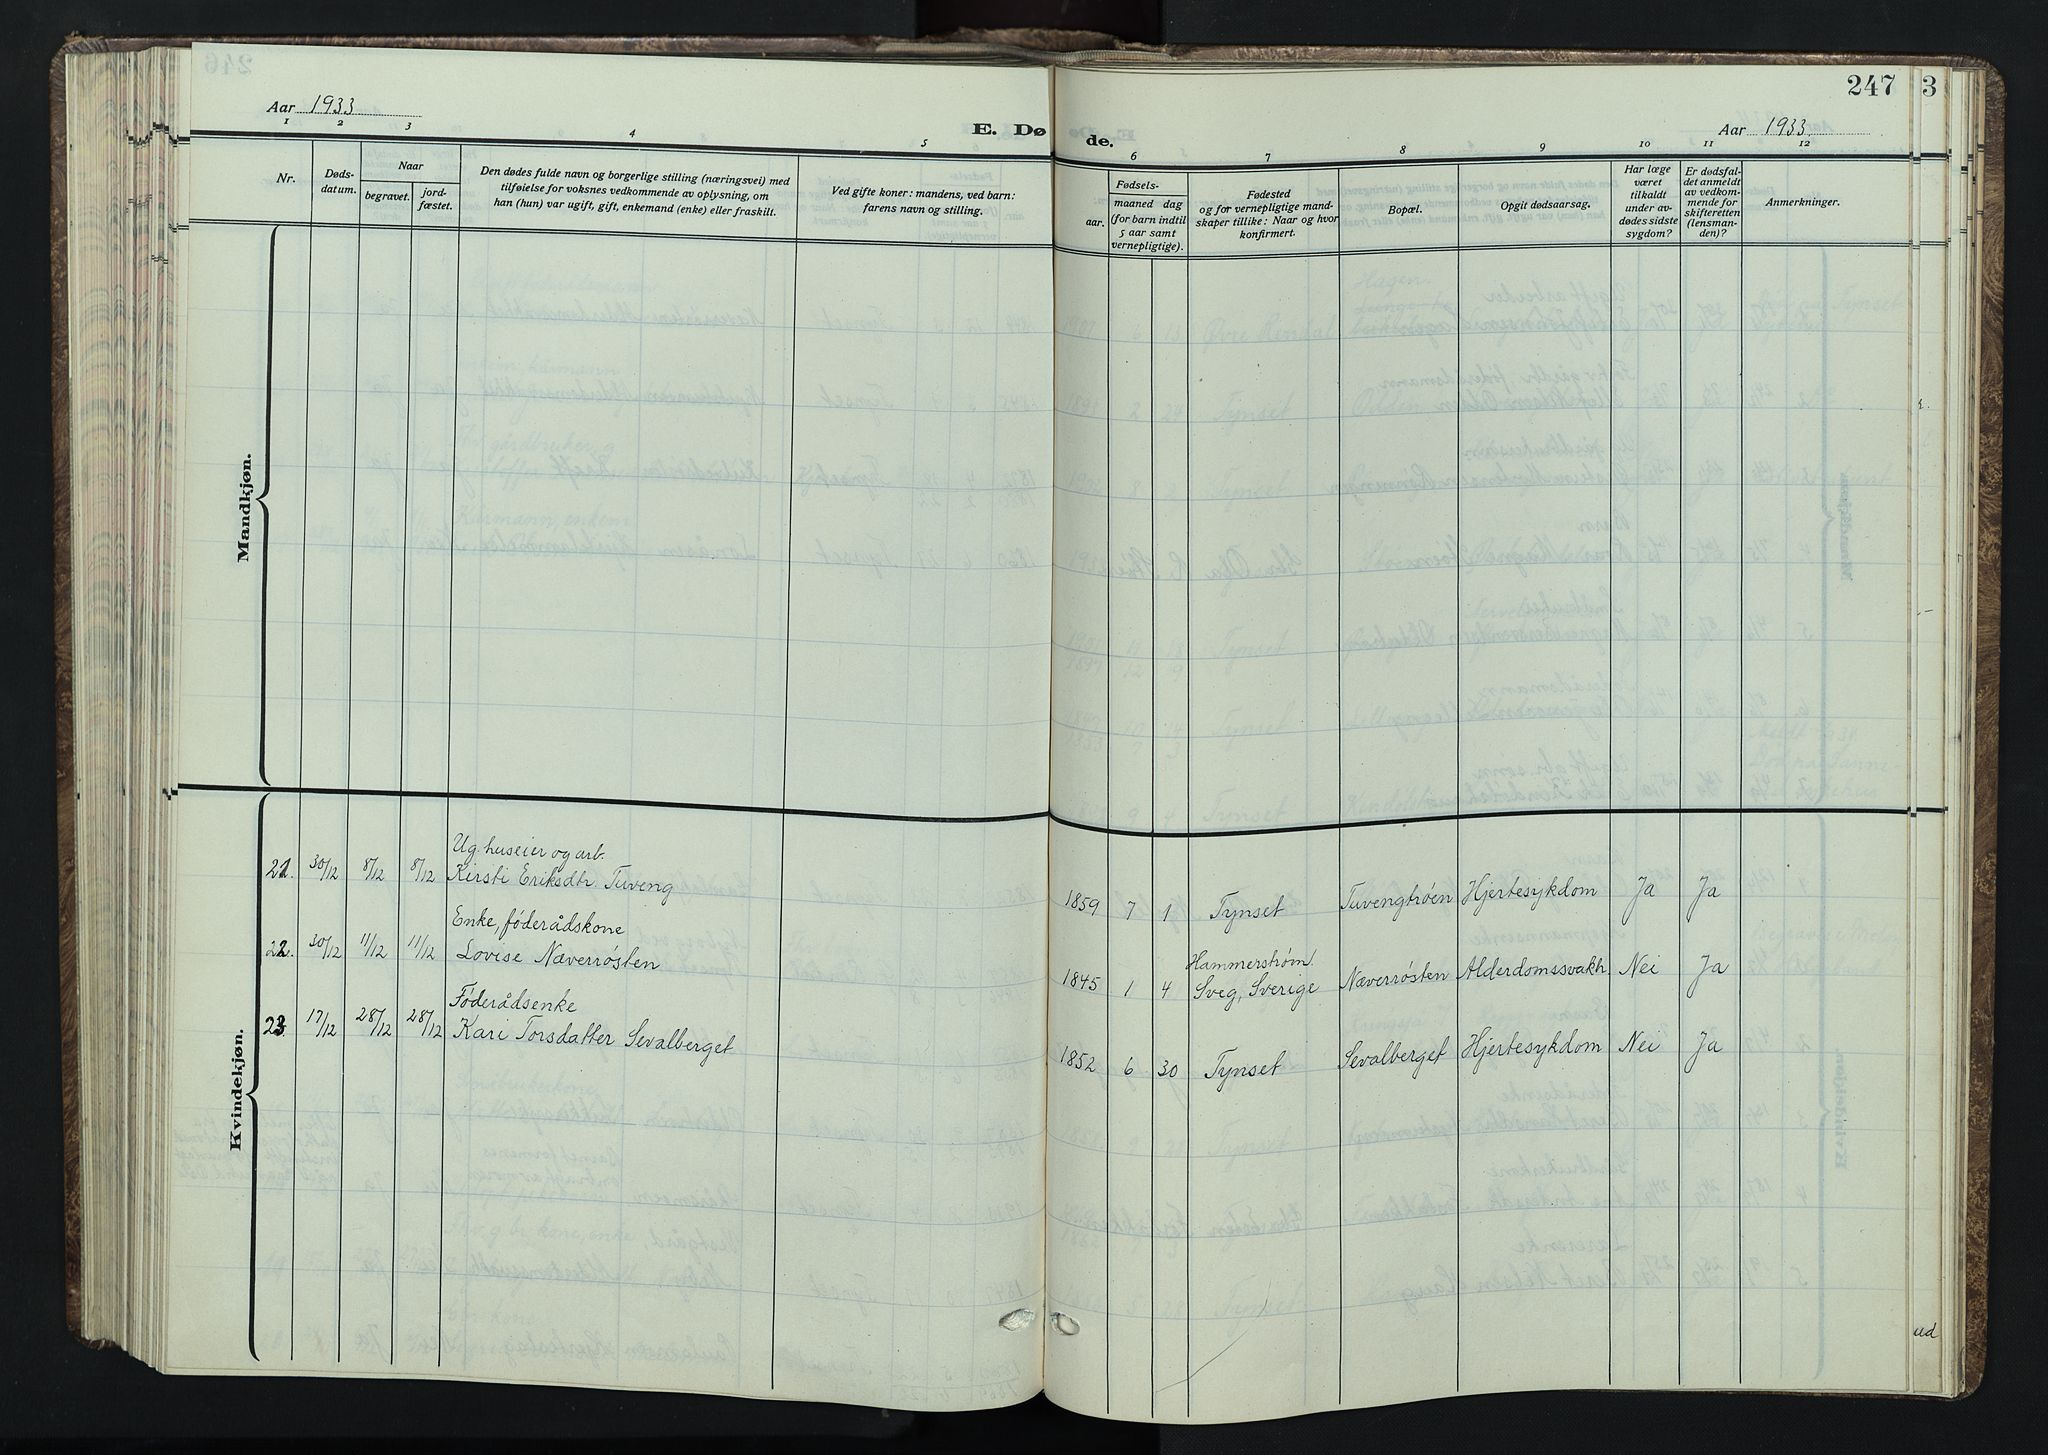 Aar 1933
E. Dø
1 2 3 4 5
Nr.
Døds-
datum.
Naar
begravet.
jord-
fæstet.
Den dødes fulde navn og borgerlige stilling (næringsvei) med
tilføielse for voksnes vedkommende av oplysning, om
han (hun) var ugift, gift, enkemand (enke) eller fraskilt.
Ved gifte koner: mandens, ved barn:
farens navn og stilling.
Mandkjøn.
Kvindekjøn.
Ug. huseier og arb.
21. 30/12 8/12 8/12 Kirsti Eriksdtr. Tuveng
Enke, føderådskone
22. 30/12 11/12 11/12 Lovise Næverrøsten
Føderådsenke
23. 17/12 28/12 28/12 Kari Torsdatter Sevalberget
247
3
de.
Aar 1933
6 7 8 9 10 11 12
Fødsels-
aar.
maaned dag
(for barn indtil
5 aar samt
vernepligtige).
Fødested
og for vernepligtige mand-
skaper tillike: Naar og hvor
konfirmert.
Bopæl.
Opgit dødsaarsag.
Har læge
været
tilkaldt
under av-
dødes sidste
sygdom?
Er dødsfal-
det anmeldt
av vedkom-
mende for
skifteretten
(lensman-
den)?
Anmerkninger.
1859 7 1 Tynset Tuvengtrøen Hjertesykdom Ja Ja
Hammerstrøm.
1845 1 4 Sveg, Sverige Næverrøsten Alderdomssvakh. Nei Ja
1852 6 30 Tynset Sevalberget Hjertesykdom Nei Ja
ud